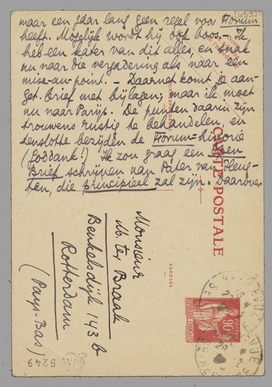 maar een jaar lang geen regel voor Forum
heeft. Mogelijk wordt hij ook boos. – Ik
heb een kater van dit alles, en snak
nu naar die vergadering als naar een
mise-au-point. – Daarnet komt je aan-
get. brief met bijlagen; maar ik moet
nu naar Parijs. De punten daarin zijn
trouwens rustig te behandelen, en
tenslotte bezijden de Forum-historie
(Goddank!) Ik zou graag een Open
Brief schrijven aan Pater van Heug-
ten, die principieel zal zijn. Daarover
CARTE POSTALE
ADRESSE
Monsieur
M. ter Braak
Berkelsdijk 143 b
Rotterdam
(Pays-Bas)
90
5249